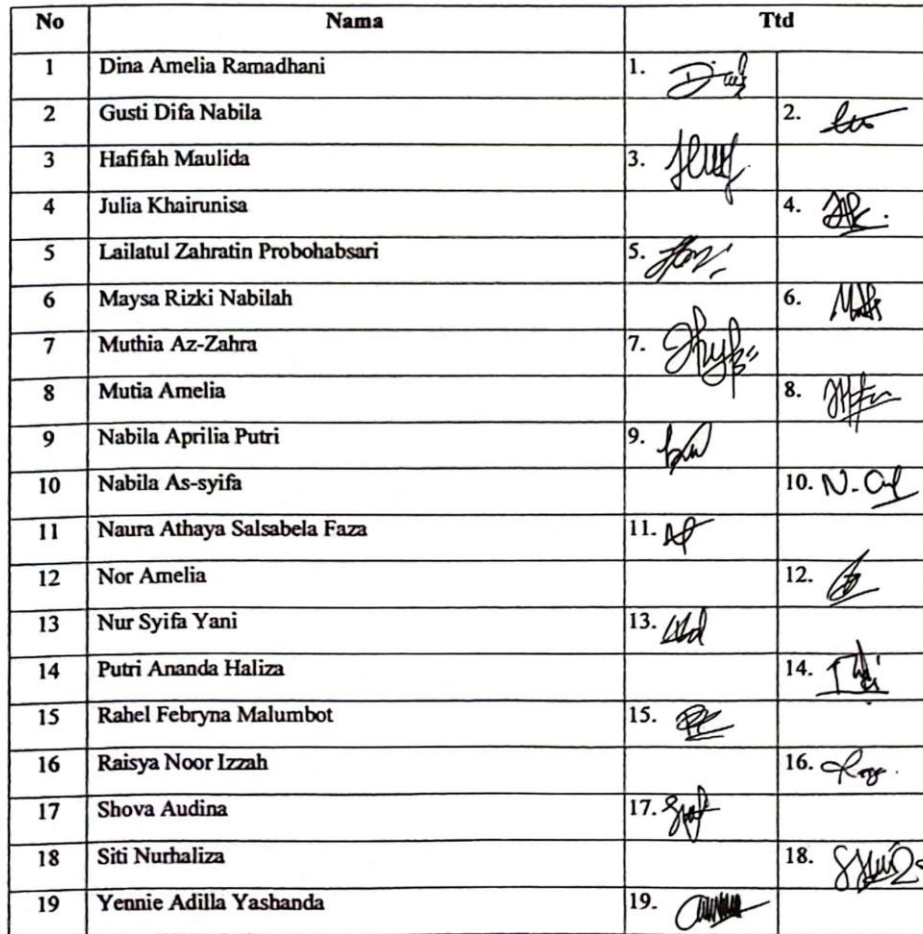 No Nama Ttd
1 Dina Amelia Ramadhani 1.
2 Gusti Difa Nabila 2.
3 Hafifah Maulida 3.
4 Julia Khairunisa 4.
5 Lailatul Zahratin Probohabsari 5.
6 Maysa Rizki Nabilah 6.
7 Muthia Az-Zahra 7.
8 Mutia Amelia 8.
9 Nabila Aprilia Putri 9.
10 Nabila As-syifa 10.
11 Naura Athaya Salsabela Faza 11.
12 Nor Amelia 12.
13 Nur Syifa Yani 13.
14 Putri Ananda Haliza 14.
15 Rahel Febryna Malumbot 15.
16 Raisya Noor Izzah 16.
17 Shova Audina 17.
18 Siti Nurhaliza 18.
19 Yennie Adilla Yashanda 19.